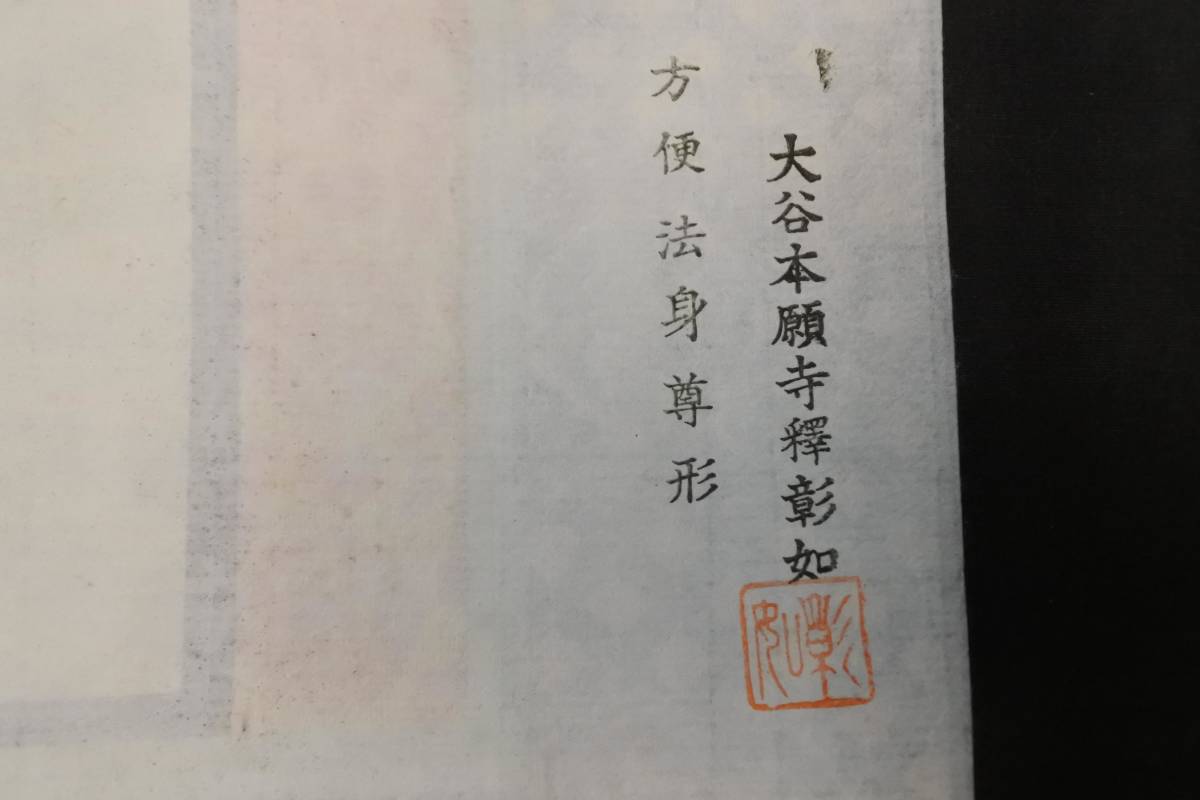 大谷本願寺釋彰如
方便法身尊形
彰如